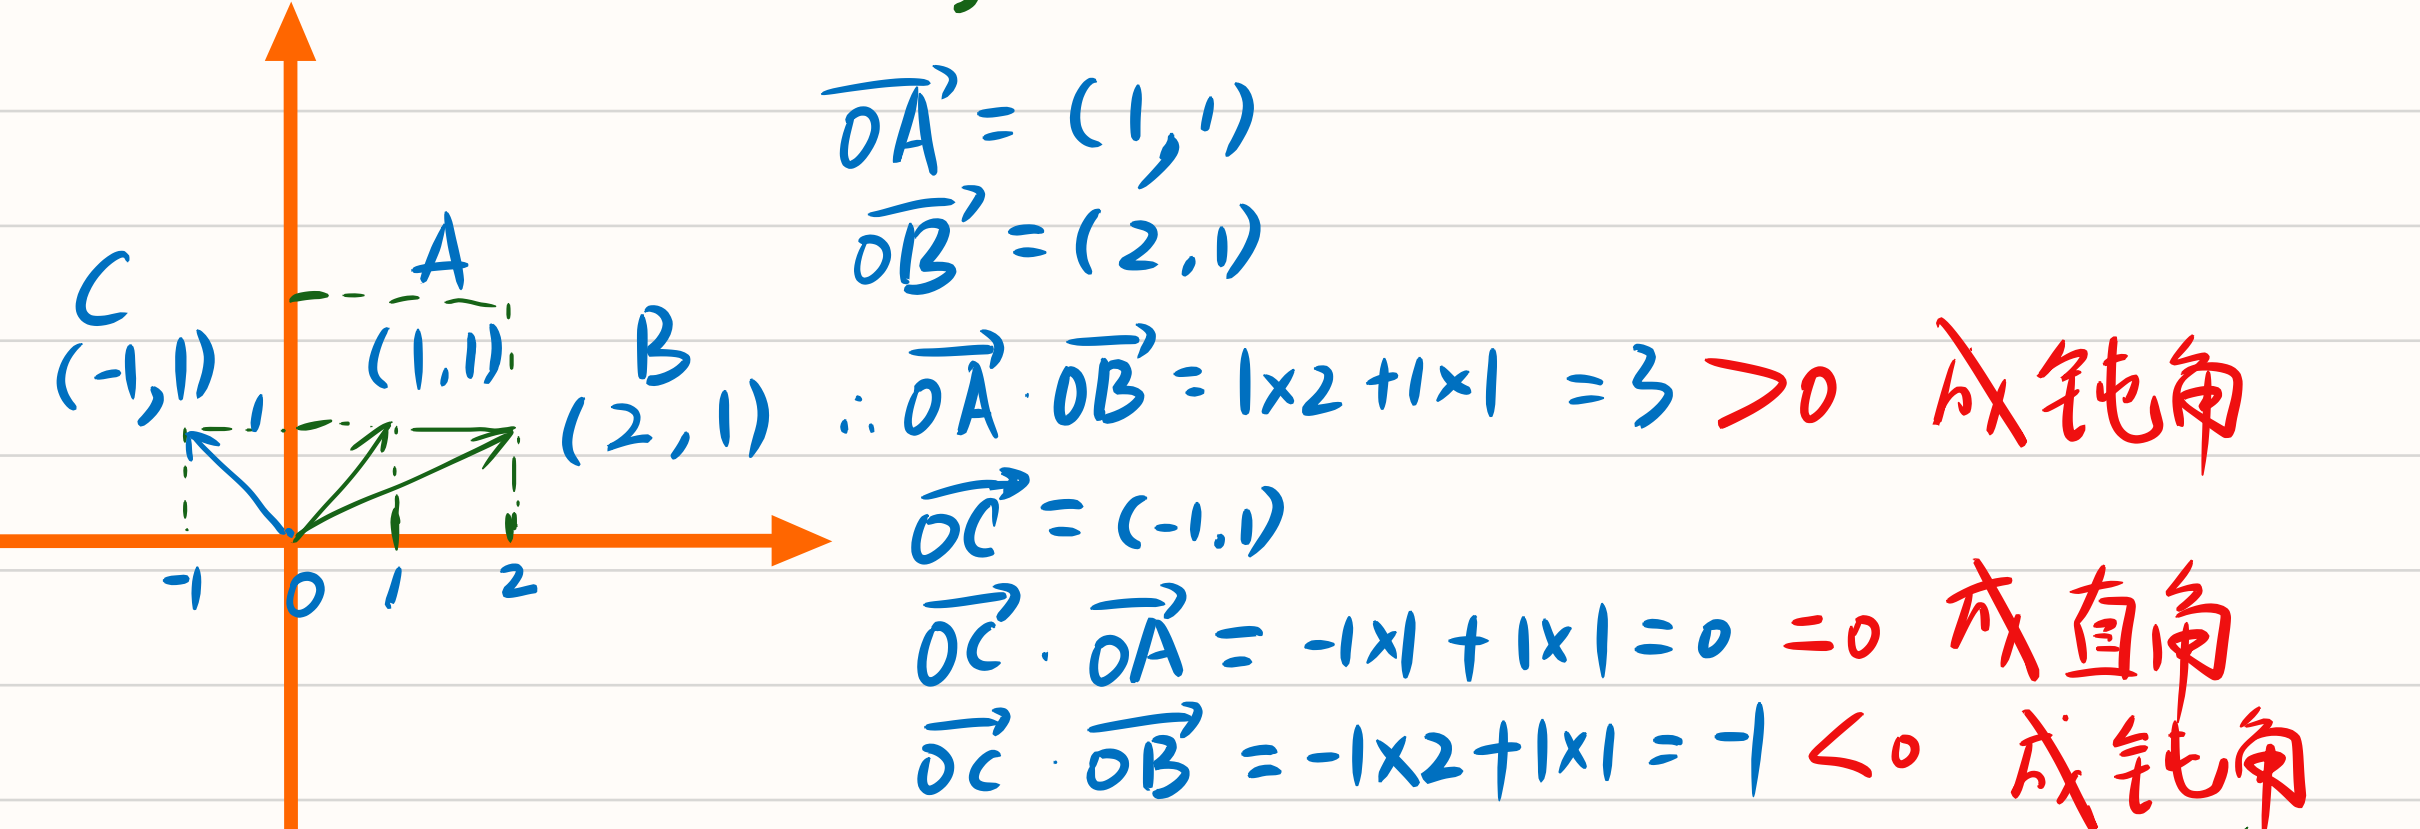 C
(-1,1)
A
(1,1)
B
(2,1)
1
-1 0 1 2
$\overrightarrow{OA}$ = (1,1)
$\overrightarrow{OB}$ = (2,1)
∴ $\overrightarrow{OA}$ · $\overrightarrow{OB}$ = 1×2+1×1 =3 >0 成钝角
$\overrightarrow{OC}$ = (-1,1)
$\overrightarrow{OC}$ · $\overrightarrow{OA}$ = -1×1 + 1×1 = 0 =0 成直角
$\overrightarrow{OC}$ · $\overrightarrow{OB}$ = -1×2+1×1 = -1 <0 成钝角